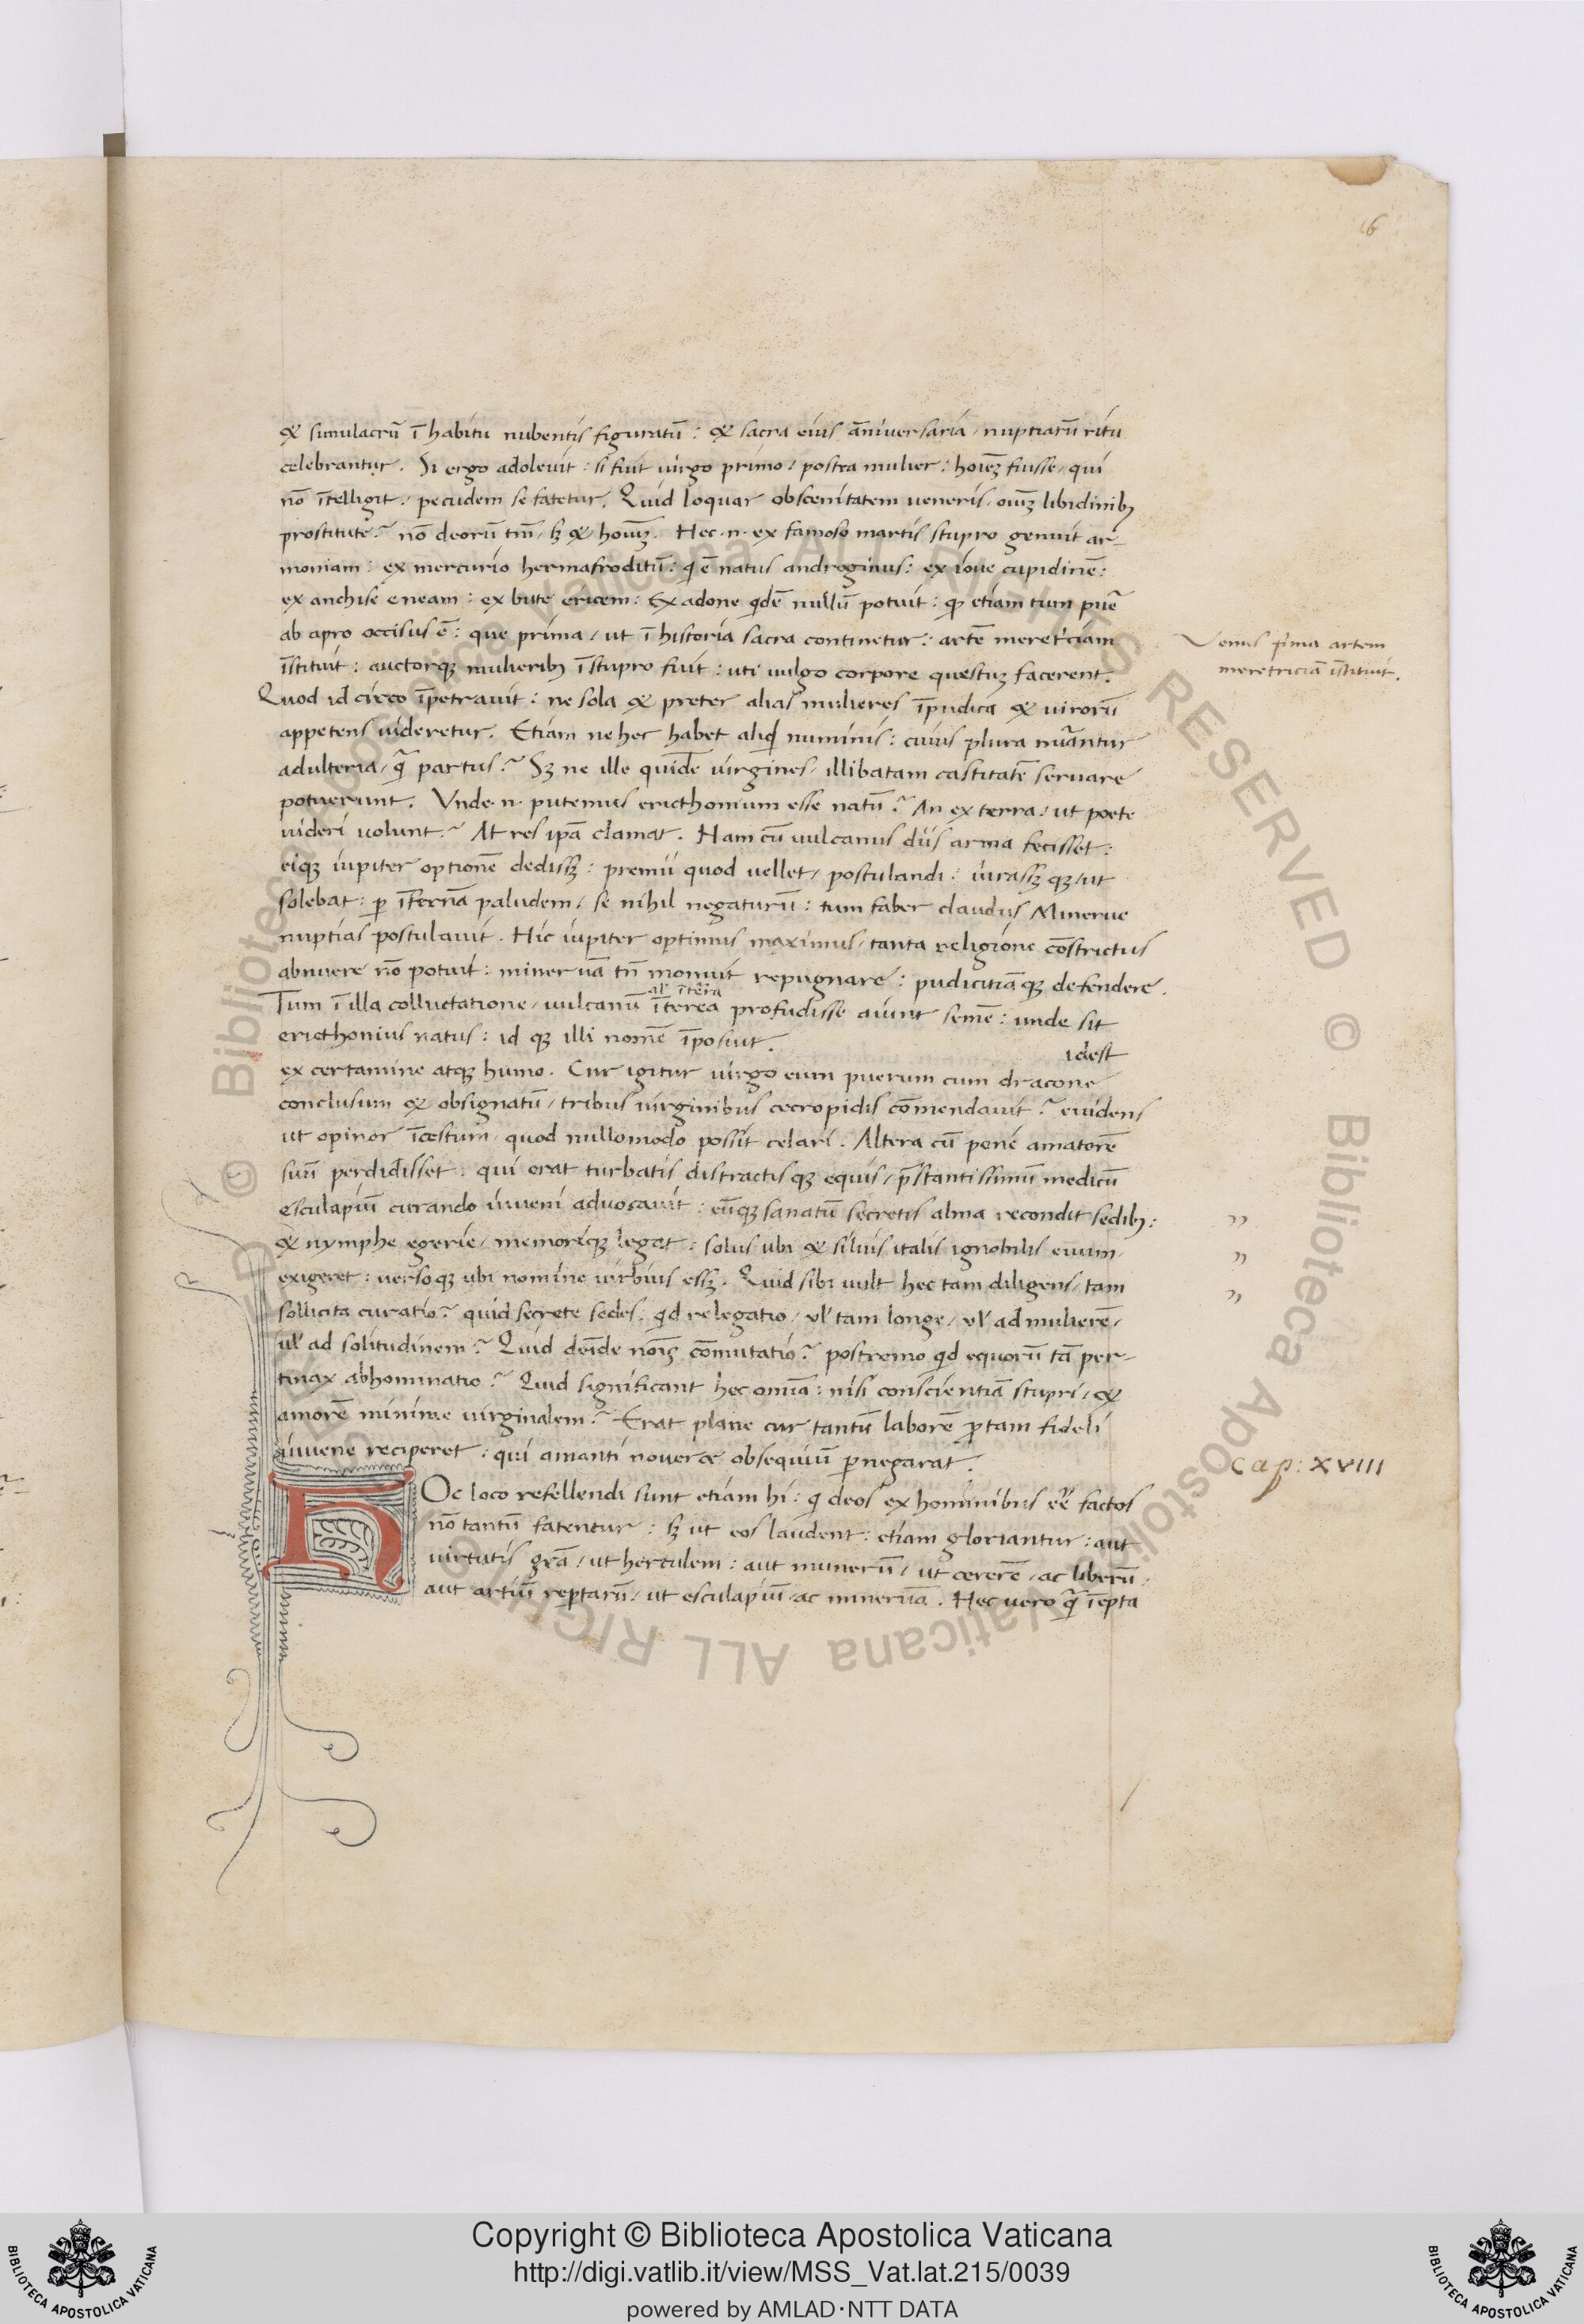 16
& simulacrū ī habitu nubentis figuratū : & sacra eius āniversaria / nuptiarū ritu
celebrantur . Si ergo adolevit : si fuit virgo primo / postea mulier : hoiēʒ fuisse / qui
nō ītelligit / pecudem se fatetur . Quid loquar obscenitatem veneris / oīuʒ libidinibꝫ
prostitute ? nō deorū tm̄ / sʒ & hoīuʒ . Hec .n. ex famoso martis stupro genuit ar-
moniam : ex mercurio hermafroditū : q ē natus andreginus : ex iove cupidinē :
ex anchise eneam : ex bute ericem : Ex adone qdē nullū potuit : qꝫ etiam tum puē
ab apro occisus ē : que prima / ut ī historia sacra continetur : artē meretriciam
īstituit : auctorqꝫ mulieribꝫ ī stupro fuit : uti vulgo corpore questuʒ facerent .
Venus pīma artem
meretriciā īstituit .
Quod id circo īpetravit : ne sola & preter alias mulieres īpudica & virorū
appetens videretur . Etiam ne hec habet aliqd numinis : cuius plura nūantur
adulteria / q̄ partus ? Sʒ ne ille quidē virgines / illibatam castitatē servare
potuerunt . Unde .n. putemus ericthonium esse natū ? An ex terra / ut poete
videri volunt ? At res ipā clamat . Nam cū vulcanus diis arma fecisset :
eiqꝫ iupiter optionē dedissʒ : premii quod vellet / postulandi : iurassʒ qꝫ / ut
solebat : ꝑ īfernā paludem / se nihil negaturū : tum faber claudus Minerve
nuptias postulavit . Hic iupiter optimus maximus / tanta religione cōstrictus
abnuere nō potuit : minervā tn̄ monuit repugnare : pudicitiāqꝫ defendere .
al' ī terrā
Tum ī illa colluctatione / vulcanū īterea profudisse aiunt semē : unde sit
ericthonius natus : id qꝫ illi nomē īpositū .
idest
ex certamine atqꝫ humo . Cur igitur virgo eum puerum cum dracone
conclusum & obsignatū / tribus virginibus cecropidis cōmendavit ? evidens
ut opinor īcestum / quod nullomodo possit celari . Altera cū pene amatorē
suū perdidisset : qui erat turbatis distractis qꝫ equis / p̄stantissimū medicū
esculapiū curando iuveni advocavit : eūqꝫ sanatū secretis alma recondit sedibꝫ :
& nymphe egerie / memoriqꝫ legat : solus ubi & silvis italis ignobilis evum /
exigeret : versoqꝫ ubi nomine virbius essʒ . Quid sibi vult hec tam diligens / tam
sollicita curatio ? quid secrete sedes : qd relegatio / vl' tam longe / vl' ad mulierē /
vl' ad solitudinem ? Quid deīde noīs cōmutatio ? postremo qd equorū tā per-
tinax abhominatio ? Quid significant hec omīa : nisi conscientiā stupri / &
amorē minime virginalem ? Erat plane cur tantū laborē ꝓ tam fideli
iuvene reciperet : qui amanti noverce obsequiū ꝑnegarat .
Cap: XVIII
HOc loco refellendi sunt etiam hi : q deos ex hominibus eē factos
nō tantū fatentur : sʒ ut eos laudent : etiam gloriantur : aut
virtutis grā / ut herculem : aut munerū / ut cererē / ac liberū :
aut artiū reꝑtarū / ut esculapiū / ac minervā . Hec vero q̄ īepta
Copyright © Biblioteca Apostolica Vaticana
http://digi.vatlib.it/view/MSS_Vat.lat.215/0039
powered by AMLAD·NTT DATA